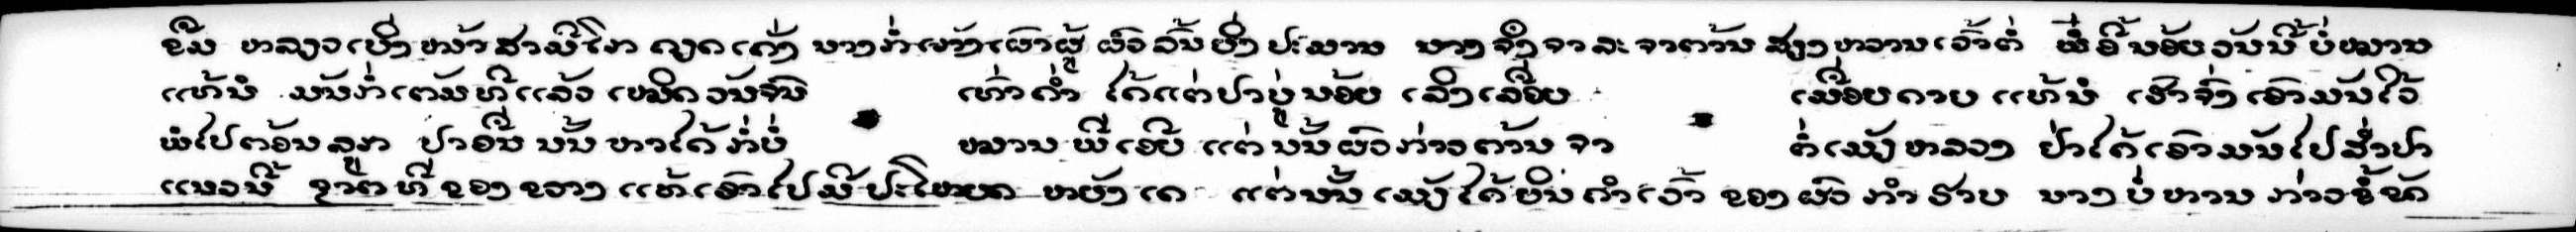 ຂືນ ຫລຽວເບິ່ງໜ້າ ສາມີໂກ ຄຽດເຄັ່ງ ນາງກໍ່ ເຜົາຜູ້ ຜົວລົ້ນຍິ່ງ ປະມານ ນາງຈຶ່ງຈາລະຈາຕ້ານ ສຽງຫວານເວົ້າຕໍ່ ພໍ່ອີ້ນ້ອຍ ວັນນີ້ບໍ່ໝານ
ແທ້ນໍ ມັນກໍ່ເຕັມທີແລ້ວ ເໝິດວັນຈົນ ເຫົ່າຄ່ຳ ໄດ້ແຕ່ປາປູ່ນ້ອຍ ເລິງເລື້ອຍ ເມື່ອຍກາຍ ແທ້ນໍ ເຮົາຈົ່ງເອົາມັນໄວ້
ພໍໄປຕ້ອນລູກ ປາອື່ນນັ້ນ ຫາໄດ້ກໍ່ບໍ່ ໝານ ພີ່ເອີຍ ແຕ່ນັ້ນຜົວກ່າວຕ້ານ ຈາຕໍ່ເມັຽຫລວງ ຢ່າໄດ້ເອົາມັນໄປ ສ່ຳປາ
ແນວນີ້ ຊາດທີ່ຂອງຂວາງ ແທ້ເອົາໄປ ມີປະໂຫຍດ ຫຍັງເດ ແຕ່ນັ້ນເມັຽໄດ້ຍິນ ຄຳເວົ້າ ຂອງຜົວ ກຳຮາບ ນາງບໍ່ຫານ ກ່າວຂໍ້ຂັດ